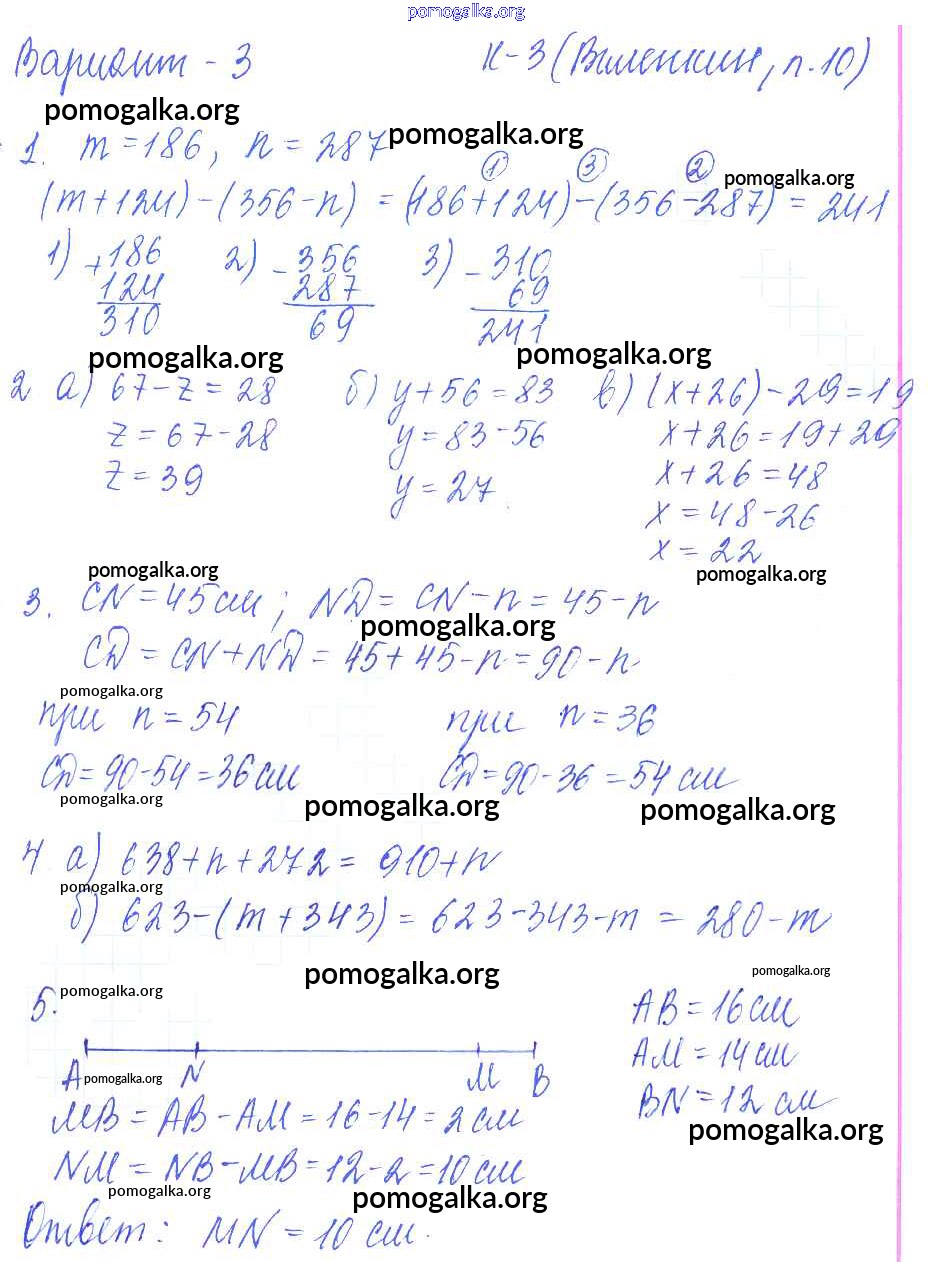 pomogalka.org
Вариант - 3 К-3 (Виленкин, п. 10)
pomogalka.org
1. m = 186, n = 287 pomogalka.org
① ③ ② pomogalka.org
(m+124) - (356-n) = (186+124) - (356-287) = 241
1) +186 2) -356 3) -310
124 287 69
310 69 241
pomogalka.org pomogalka.org
2 а) 67 - z = 28 б) y + 56 = 83 в) (x+26) - 29 = 19
z = 67 - 28 y = 83 - 56 x + 26 = 19 + 29
z = 39 y = 27 x + 26 = 48
x = 48 - 26
x = 22
pomogalka.org pomogalka.org
3. CN = 45 см; ND = CN - n = 45 - n
pomogalka.org
CD = CN + ND = 45 + 45 - n = 90 - n
pomogalka.org
при n = 54 при n = 36
CD = 90 - 54 = 36 см CD = 90 - 36 = 54 см
pomogalka.org pomogalka.org pomogalka.org
4. а) 638 + n + 272 = 910 + n
pomogalka.org
б) 623 - (m + 343) = 623 - 343 - m = 280 - m
pomogalka.org pomogalka.org
5. pomogalka.org AB = 16 см
AM = 14 см
A pomogalka.org N M B
BN = 12 см
MB = AB - AM = 16 - 14 = 2 см
pomogalka.org
NM = NB - MB = 12 - 2 = 10 см
pomogalka.org pomogalka.org
Ответ: MN = 10 см.